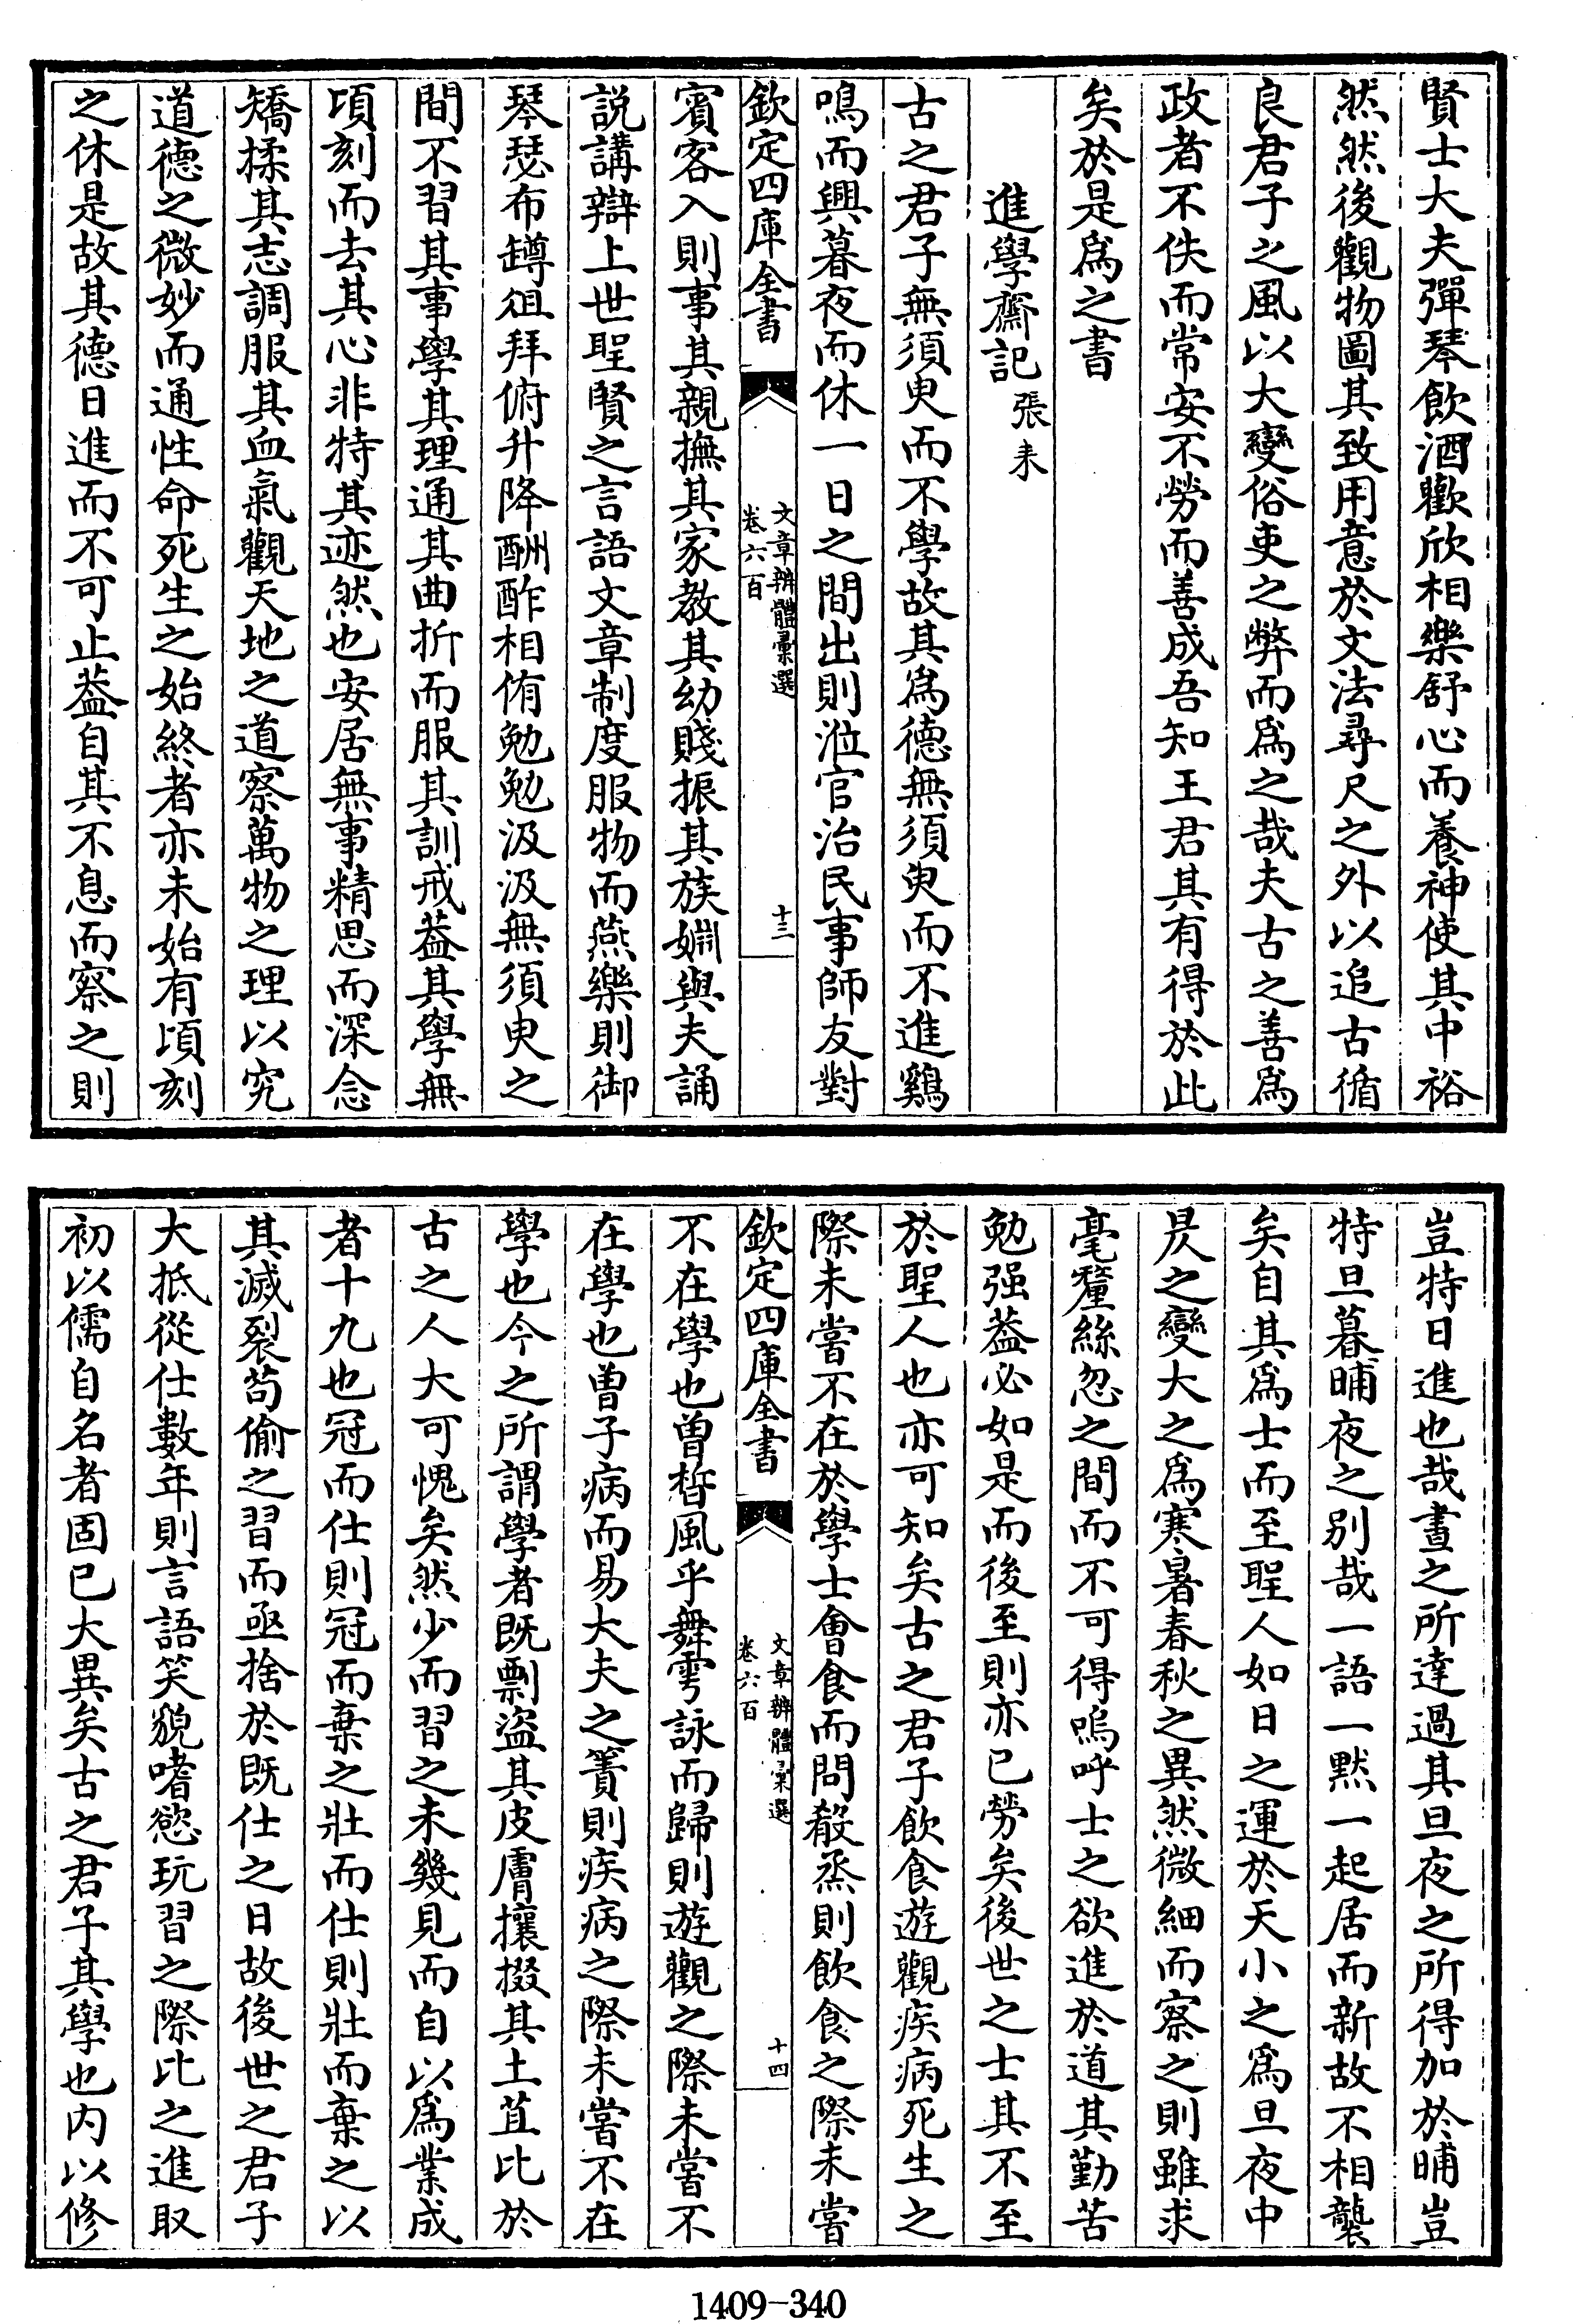 賢士大夫彈琴飲酒歡欣相樂舒心而養神使其中裕
然然後觀物圖其致用意於文法尋尺之外以追古循
良君子之風以大變俗吏之弊而爲之哉夫古之善爲
政者不佚而常安不勞而善成吾知王君其有得於此
矣於是爲之書
進學齋記張耒
古之君子無須臾而不學故其爲德無須臾而不進鷄
鳴而興暮夜而休一日之間出則涖官治民事師友對
欽定四庫全書
文章辨體彙選
卷六百
十三
賓客入則事其親撫其家教其幼賤振其族婣與夫誦
説講辯上世聖賢之言語文章制度服物而燕樂則御
琴瑟布罇俎拜俯升降酬酢相侑勉勉汲汲無須臾之
間不習其事學其理通其曲折而服其訓戒葢其學無
頃刻而去其心非特其迹然也安居無事精思而深念
矯揉其志調服其血氣觀天地之道察萬物之理以究
道德之微妙而通性命死生之始終者亦未始有頃刻
之休是故其德日進而不可止葢自其不息而察之則
豈特日進也哉晝之所達過其旦夜之所得加於晡豈
特旦暮晡夜之别哉一語一默一起居而新故不相襲
矣自其爲士而至聖人如日之運於天小之爲旦夜中
昃之變大之爲寒暑春秋之異然微細而察之則雖求
毫釐絲忽之間而不可得嗚呼士之欲進於道其勤苦
勉强葢必如是而後至則亦已勞矣後世之士其不至
於聖人也亦可知矣古之君子飲食遊觀疾病死生之
際未嘗不在於學士會食而問殽烝則飲食之際未嘗
欽定四庫全書
文章辨體彙選
卷六百
十四
不在學也曽晳風乎舞雩詠而歸則遊觀之際未嘗不
在學也曽子病而易大夫之簀則疾病之際未嘗不在
學也今之所謂學者既剽盜其皮膚攘掇其土苴比於
古之人大可愧矣然少而習之未幾見而自以爲業成
者十九也冠而仕則冠而棄之壯而仕則壯而棄之以
其滅裂茍偷之習而亟捨於既仕之日故後世之君子
大抵從仕數年則言語笑貌嗜慾玩習之際比之進取
初以儒自名者固已大異矣古之君子其學也内以修
1409-340